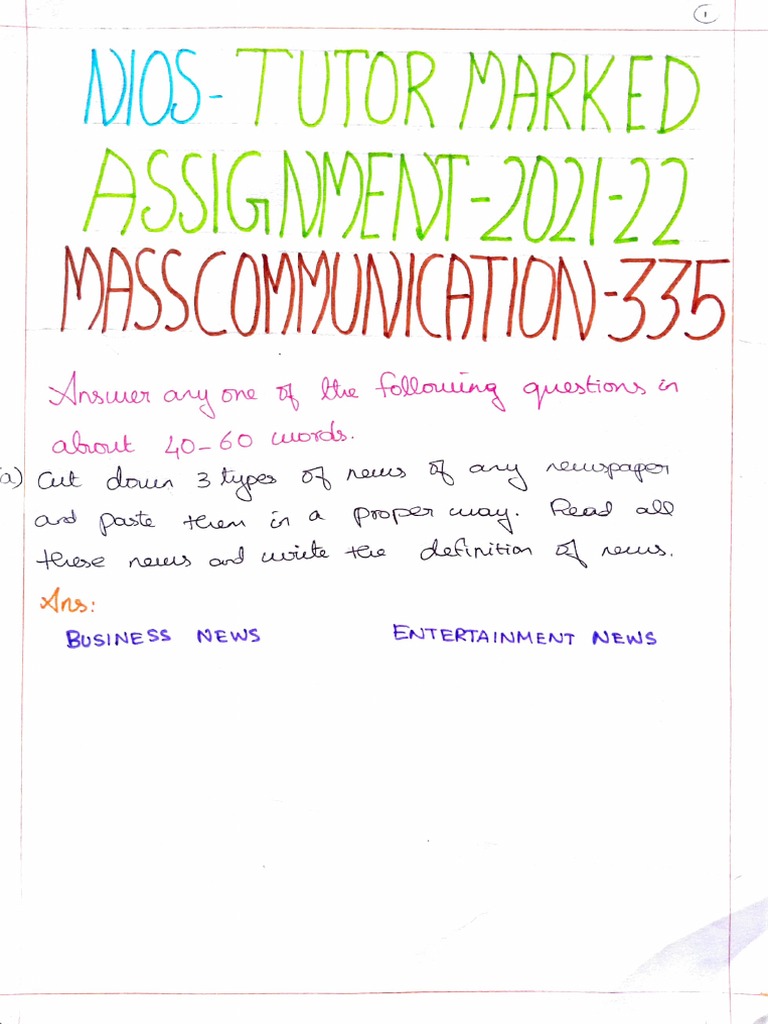 1
NIOS- TUTOR MARKED
ASSIGNMENT-2021-22
MASSCOMMUNICATION-335
Answer any one of the following questions in
about 40-60 words.
(a) Cut down 3 types of news of any newspaper
and paste them in a proper way. Read all
these news and write the definition of news.
Ans:
BUSINESS NEWS ENTERTAINMENT NEWS